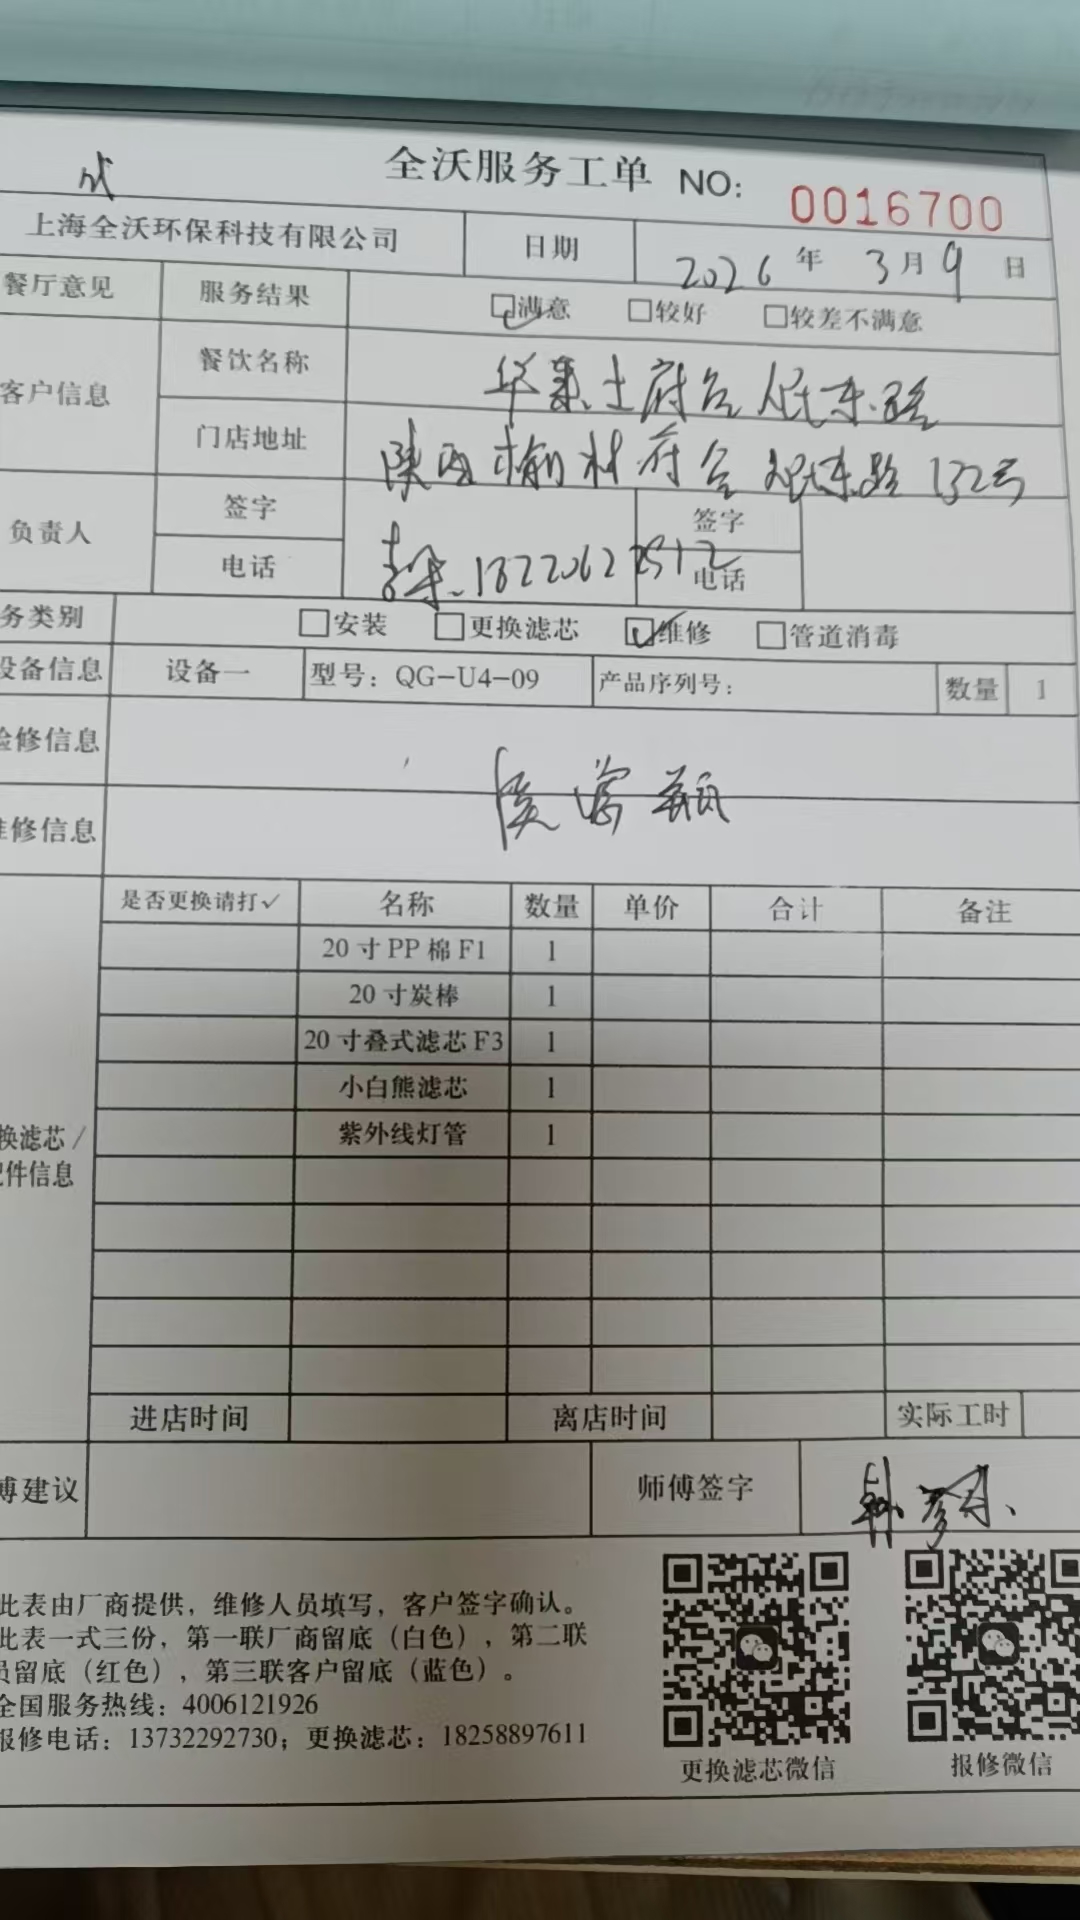 全沃服务工单 NO: 0016700
上海全沃环保科技有限公司 日期 2026 年 3 月 9 日
餐厅意见 服务结果 满意 较好 较差不满意
客户信息 餐饮名称 华莱士府谷人民东路
门店地址 陕西榆林府谷人民东路132号
负责人 签字 签字
电话 电话
务类别 安装 更换滤芯 维修 管道消毒
设备信息 设备一 型号: QG-U4-09 产品序列号: 数量 1
检修信息
维修信息
是否更换请打✓ 名称 数量 单价 合计 备注
20寸PP棉F1 1
20寸炭棒 1
20寸叠式滤芯F3 1
小白熊滤芯 1
紫外线灯管 1
换滤芯/
配件信息
进店时间 离店时间 实际工时
傅建议 师傅签字
此表由厂商提供，维修人员填写，客户签字确认。
此表一式三份，第一联厂商留底（白色），第二联
员留底（红色），第三联客户留底（蓝色）。
全国服务热线：4006121926
报修电话：13732292730；更换滤芯：18258897611
更换滤芯微信 报修微信